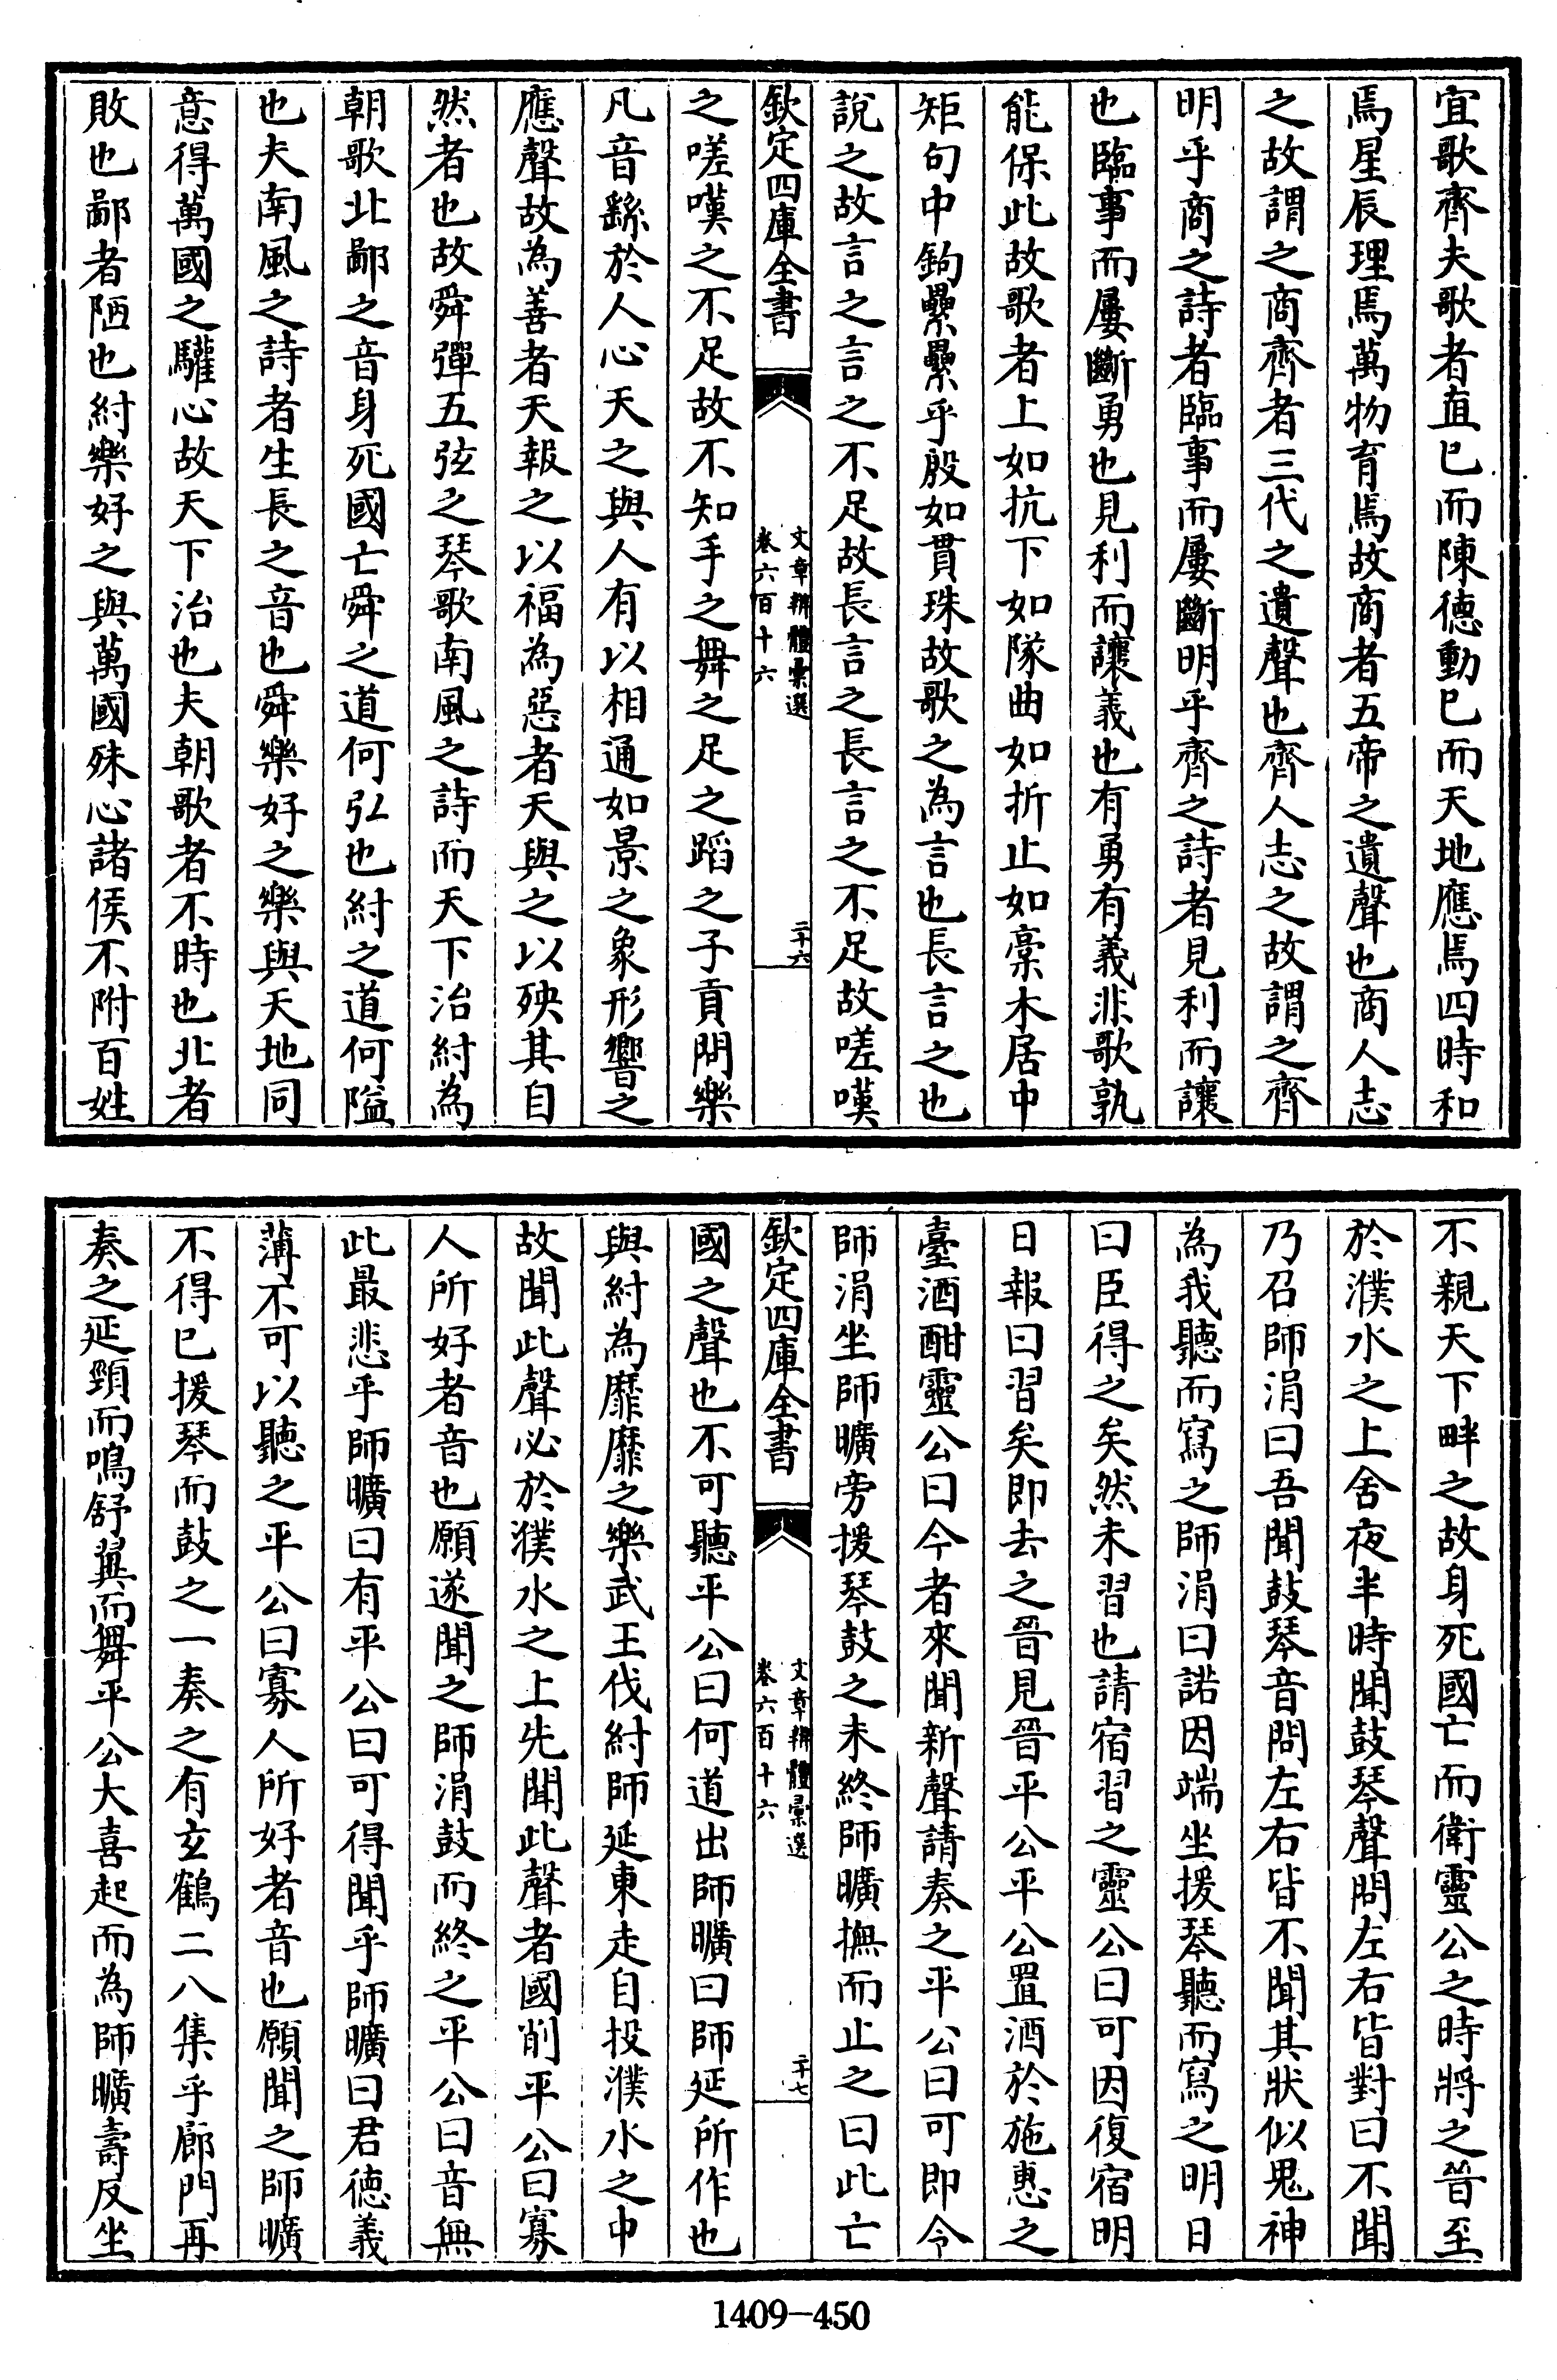 宜歌齊夫歌者直已而陳德動已而天地應焉四時和
焉星辰理焉萬物育焉故商者五帝之遺聲也商人志
之故謂之商齊者三代之遺聲也齊人志之故謂之齊
明乎商之詩者臨事而屢斷明乎齊之詩者見利而讓
也臨事而屢斷勇也見利而讓義也有勇有義非歌孰
能保此故歌者上如抗下如隊曲如折止如槀木居中
矩句中鉤纍纍乎殷如貫珠故歌之為言也長言之也
說之故言之言之不足故長言之長言之不足故嗟嘆
欽定四庫全書
文章辨體彙選
卷六百十六
二十六
之嗟嘆之不足故不知手之舞之足之蹈之子貢問樂
凡音繇於人心天之與人有以相通如景之象形響之
應聲故為善者天報之以福為惡者天與之以殃其自
然者也故舜彈五弦之琴歌南風之詩而天下治紂為
朝歌北鄙之音身死國亡舜之道何弘也紂之道何隘
也夫南風之詩者生長之音也舜樂好之樂與天地同
意得萬國之驩心故天下治也夫朝歌者不時也北者
敗也鄙者陋也紂樂好之與萬國殊心諸侯不附百姓
不親天下畔之故身死國亡而衛靈公之時將之晉至
於濮水之上舍夜半時聞鼓琴聲問左右皆對曰不聞
乃召師涓曰吾聞鼓琴音問左右皆不聞其狀似鬼神
為我聽而寫之師涓曰諾因端坐援琴聽而寫之明日
曰臣得之矣然未習也請宿習之靈公曰可因復宿明
日報曰習矣即去之晉見晉平公平公置酒於施惠之
臺酒酣靈公曰今者來聞新聲請奏之平公曰可即令
師涓坐師曠旁援琴鼓之未終師曠撫而止之曰此亡
欽定四庫全書
文章辨體彙選
卷六百十六
二十七
國之聲也不可聽平公曰何道出師曠曰師延所作也
與紂為靡靡之樂武王伐紂師延東走自投濮水之中
故聞此聲必於濮水之上先聞此聲者國削平公曰寡
人所好者音也願遂聞之師涓鼓而終之平公曰音無
此最悲乎師曠曰有平公曰可得聞乎師曠曰君德義
薄不可以聽之平公曰寡人所好者音也願聞之師曠
不得已援琴而鼓之一奏之有玄鶴二八集乎廊門再
奏之延頸而鳴舒翼而舞平公大喜起而為師曠壽反坐
1409-450